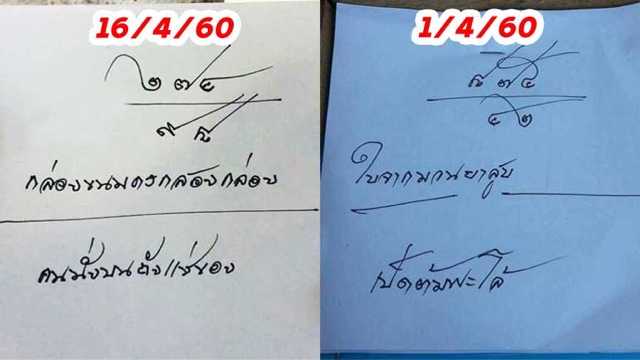 16/4/60
๒ ๗๔
๙ ๕
กล่องขนมดรกล้องกล่อง
คนนั่งบนถังแช่ของ
1/4/60
๗๕
๔๒
ใบจากมวนยาสูบ
เป็ดต้มพะโล้